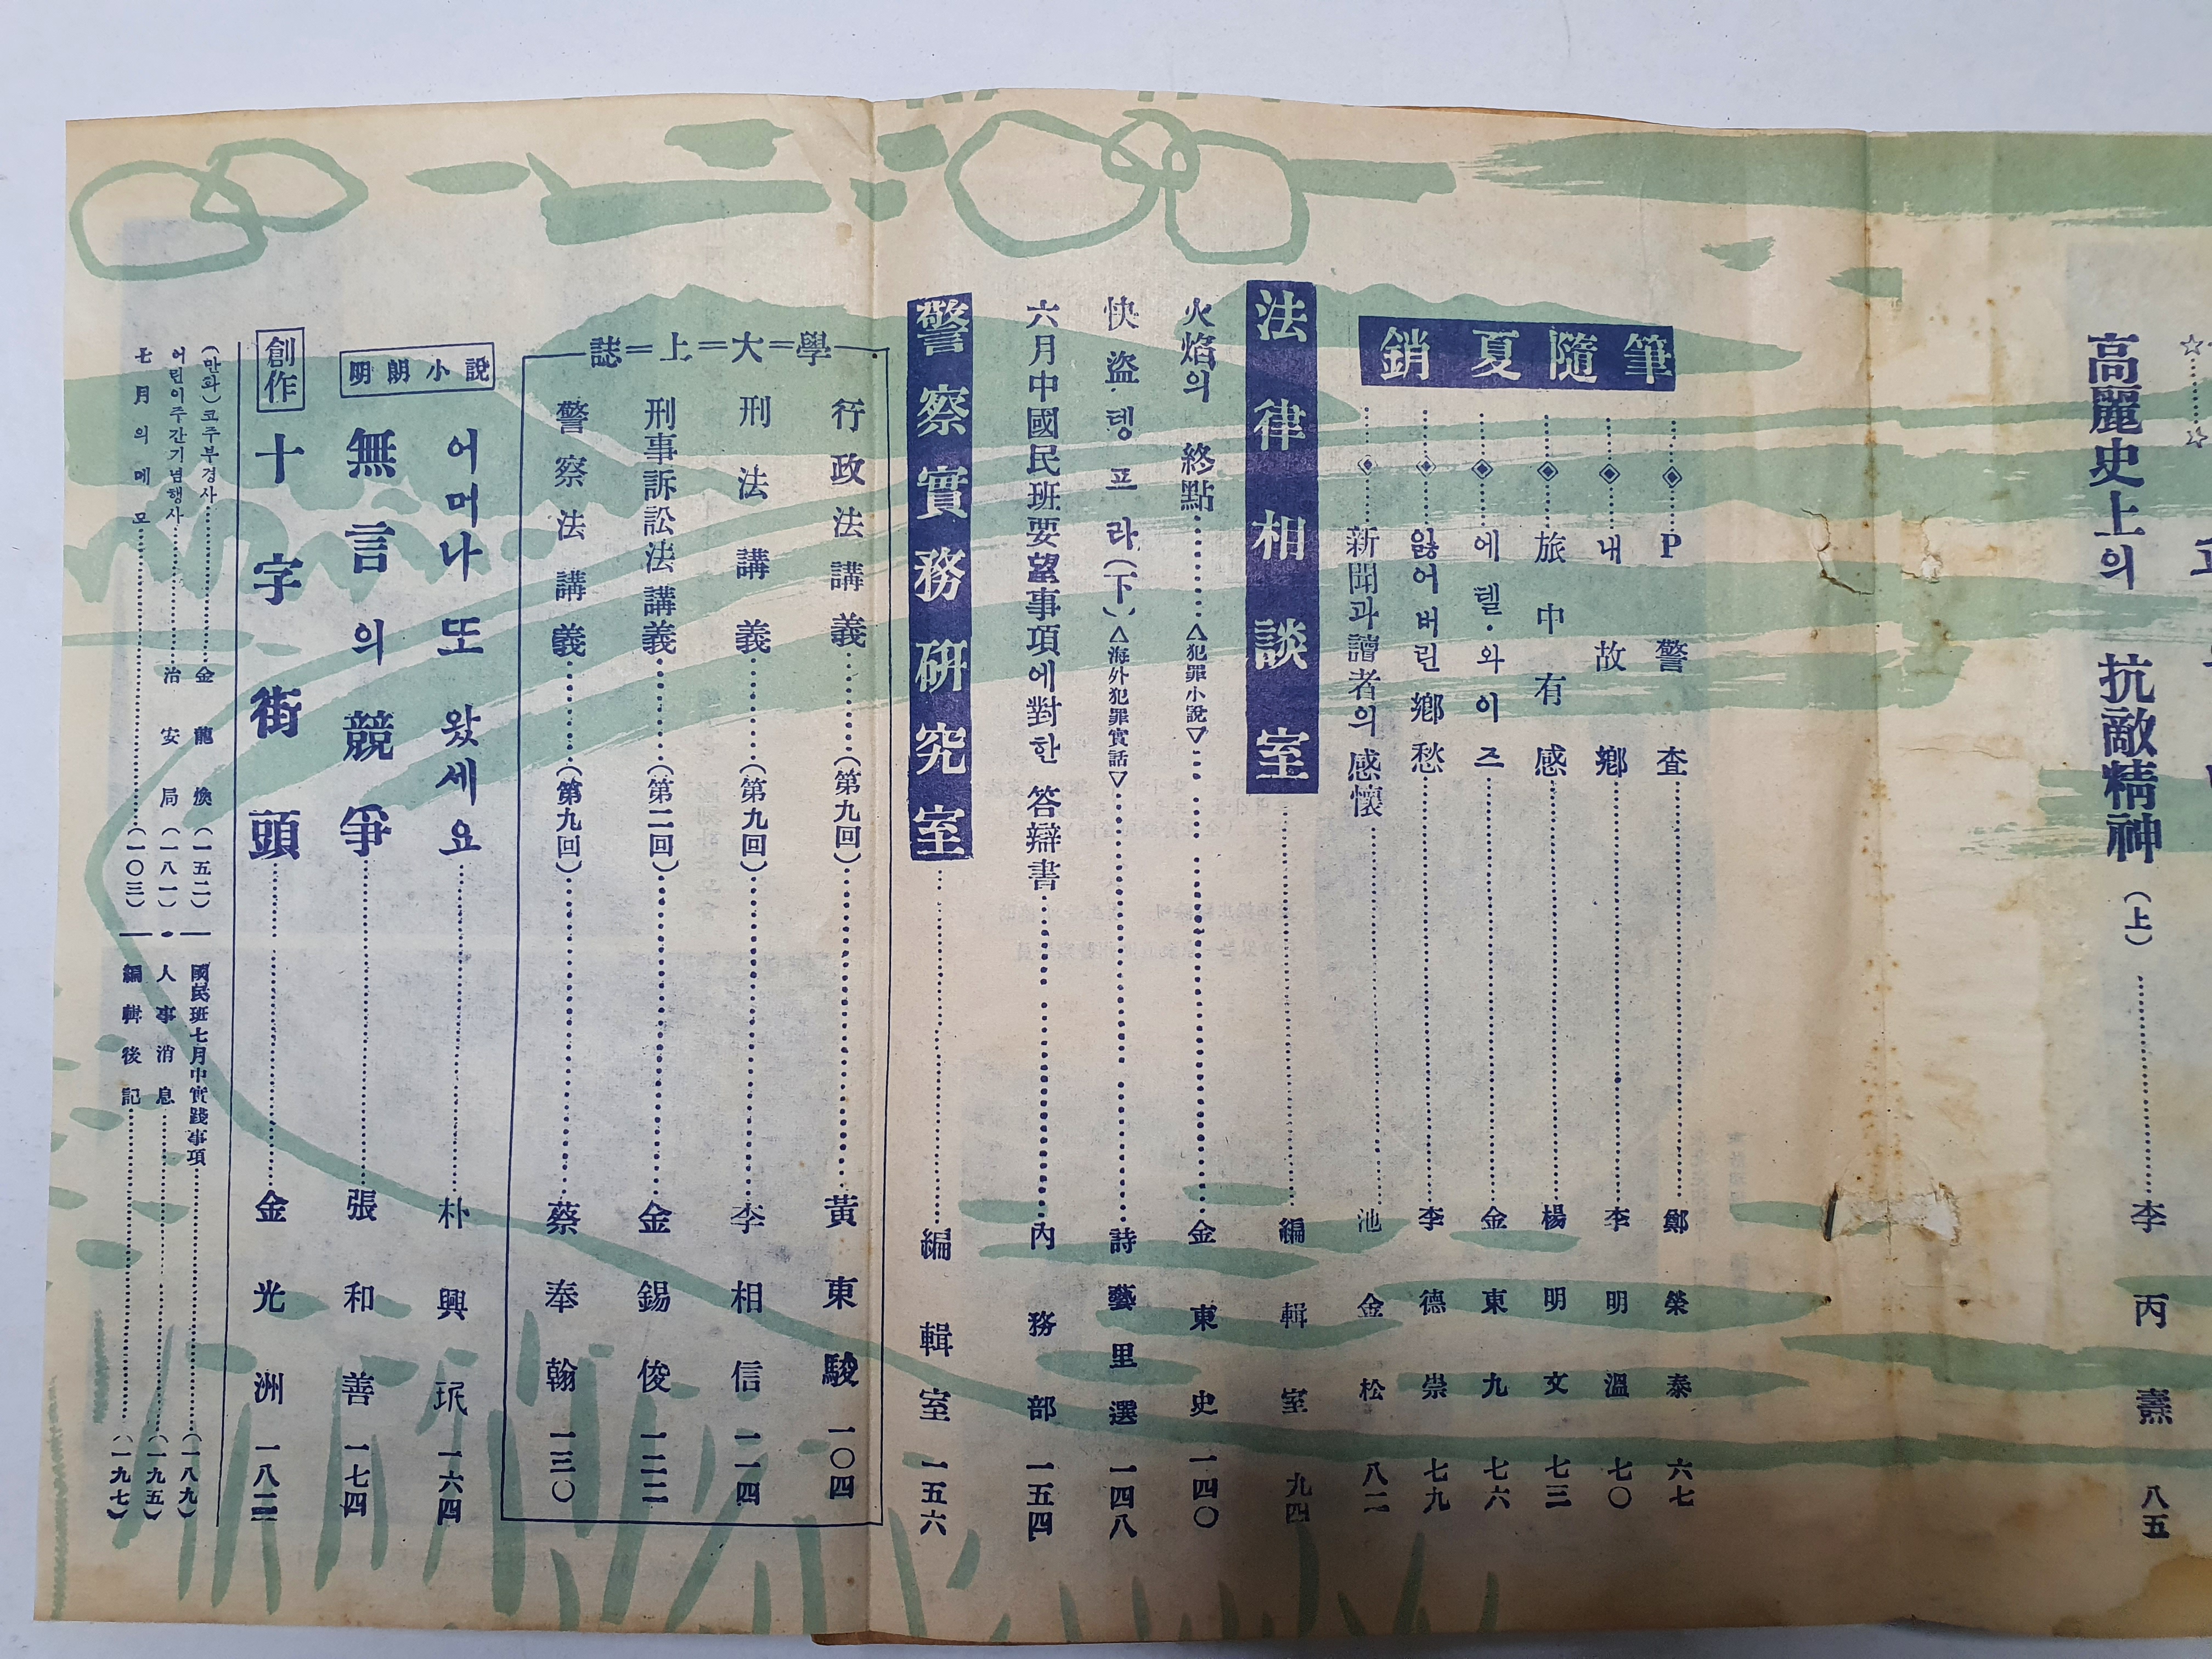 高麗史上의 抗敵精神(上)……李丙燾 八五
銷夏隨筆
P警査……鄭榮泰 六七
내故鄕……李明溫 七〇
旅中有感……楊明文 七三
에텔・와이즈……金東九 七六
잃어버린 鄕愁……李德崇 七九
新聞과 讀者의 感懷……池金松 八二
法律相談室……編輯室 九四
火焰의 終點……<犯罪小說>……金東史 一四〇
快盜・텡프라(下)<海外犯罪實話>……詩藝里選 一四八
六月中國民班要望事項에對한 答辯書……內務部 一五四
警察實務硏究室……編輯室 一五六
誌=上=大=學
行政法講義……(第九回)……黃東駿 一〇四
刑法講義……(第九回)……李相信 一一四
刑事訴訟法講義……(第二回)……金錫俊 一二二
警察法講義……(第九回)……蔡奉翰 一三〇
明朗小說
어머나 또 왔세요……朴興珉 一六四
無言의 競爭……張和善 一七四
創作 十字街頭……金光洲 一八二
(만화)코주부경사……金龍煥(一五二)
國民班七月中實踐事項……(一八九)
어린이주간기념행사……治安局(一八一)
人事消息……(一九五)
七月의메모……(一〇三)
編輯後記……(一九七)